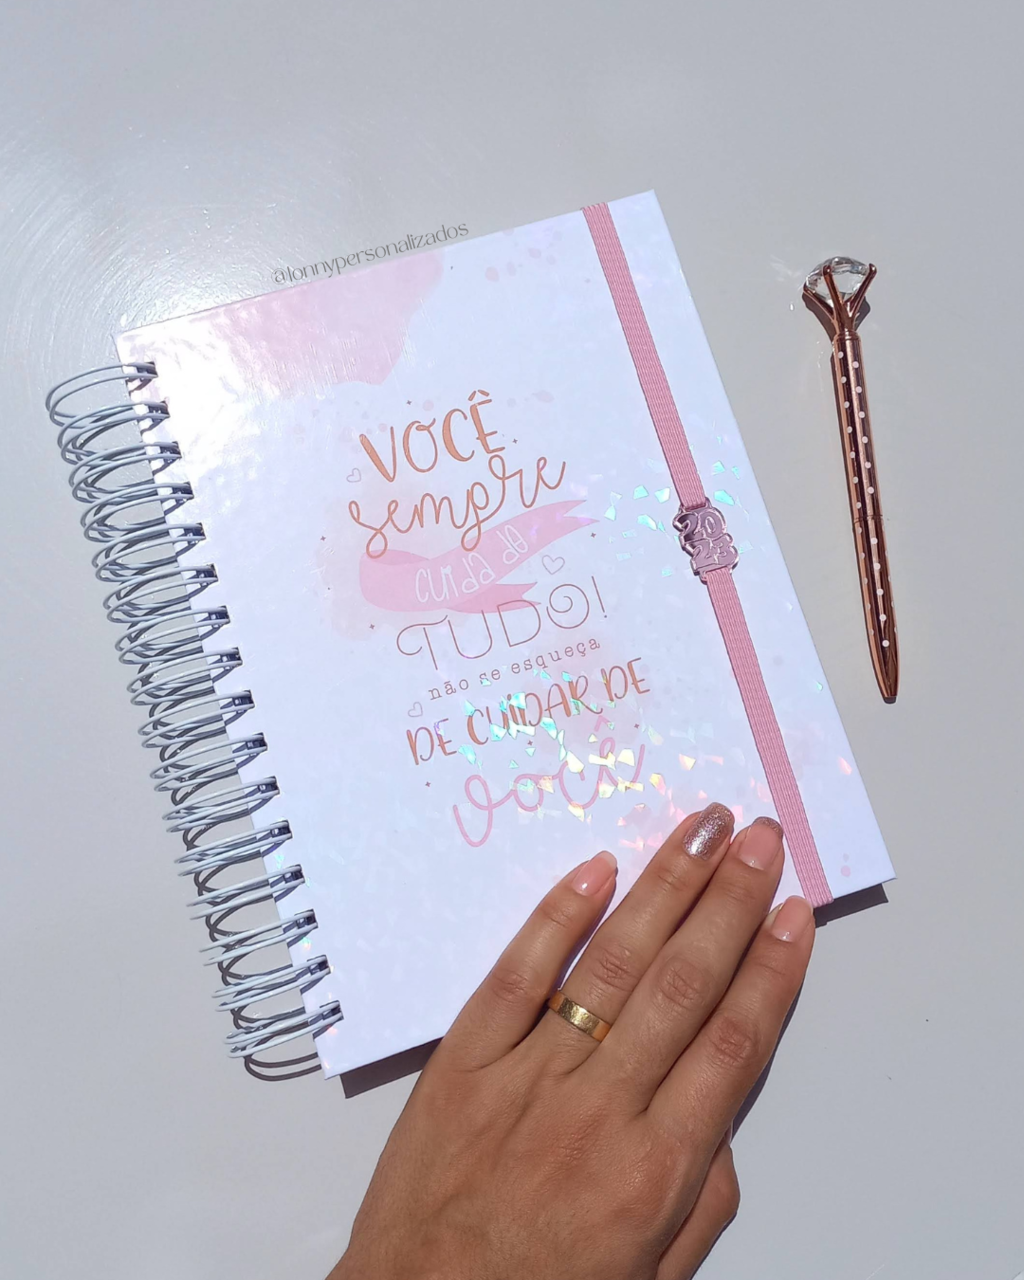 @lonnypersonalizados
VOCÊ
sempre
cuida de
TUDO!
não se esqueça
DE CUIDAR DE
você
20
23